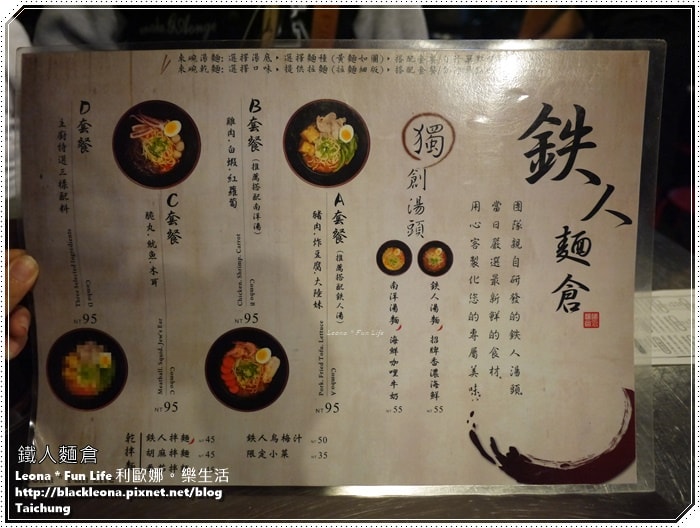 鉄人麵倉
團隊親自研發的鉄人湯頭、
當日嚴選最新鮮的食材、
用心客製化您的專屬美味。
獨創湯頭
鉄人湯麵 招牌香濃海鮮 55
南洋湯麵 海鮮咖哩牛奶 55
A套餐(推薦搭配鉄人湯)
豬肉.炸豆腐.大陸妹
Pork, Fried Tofu, Lettuce
Combo A
NT 95
B套餐(推薦搭配南洋湯)
雞肉.白蝦.紅蘿蔔
Chicken, Shrimp, Carrot
Combo B
NT 95
C套餐
脆丸.魷魚.木耳
Meatball, Squid, Jew's Ear
Combo C
NT 95
D套餐
主廚特選三樣配料
Three Selected Ingredients
Combo D
NT 95
乾拌麵
鉄人拌麵 NT 45
胡麻拌麵 NT 45
鉄人烏梅汁 NT 50
限定小菜 NT 35
Leona * Fun Life
鐵人麵倉
Leona * Fun Life 利歐娜。樂生活
http://blackleona.pixnet.net/blog
Taichung